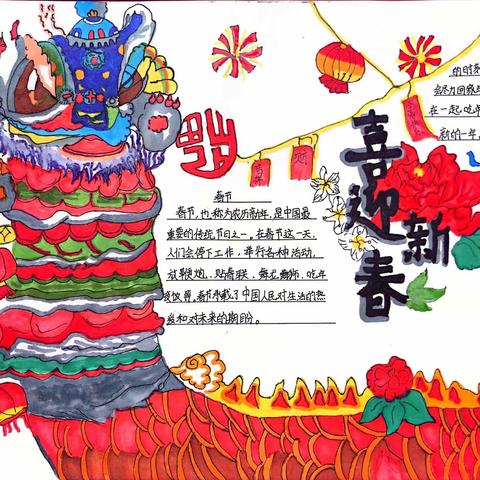 喜迎新春
春节
春节,也称为农历新年,是中国最
重要的传统节日之一。在春节这一天,
人们会停下工作,举行各种活动,
放鞭炮、贴春联、舞龙舞狮、吃年
夜饭等,春节承载了中国人民对生活的热
爱和对未来的期盼。
的时刻
会尽力回家
在一起,吃年
新的一年,